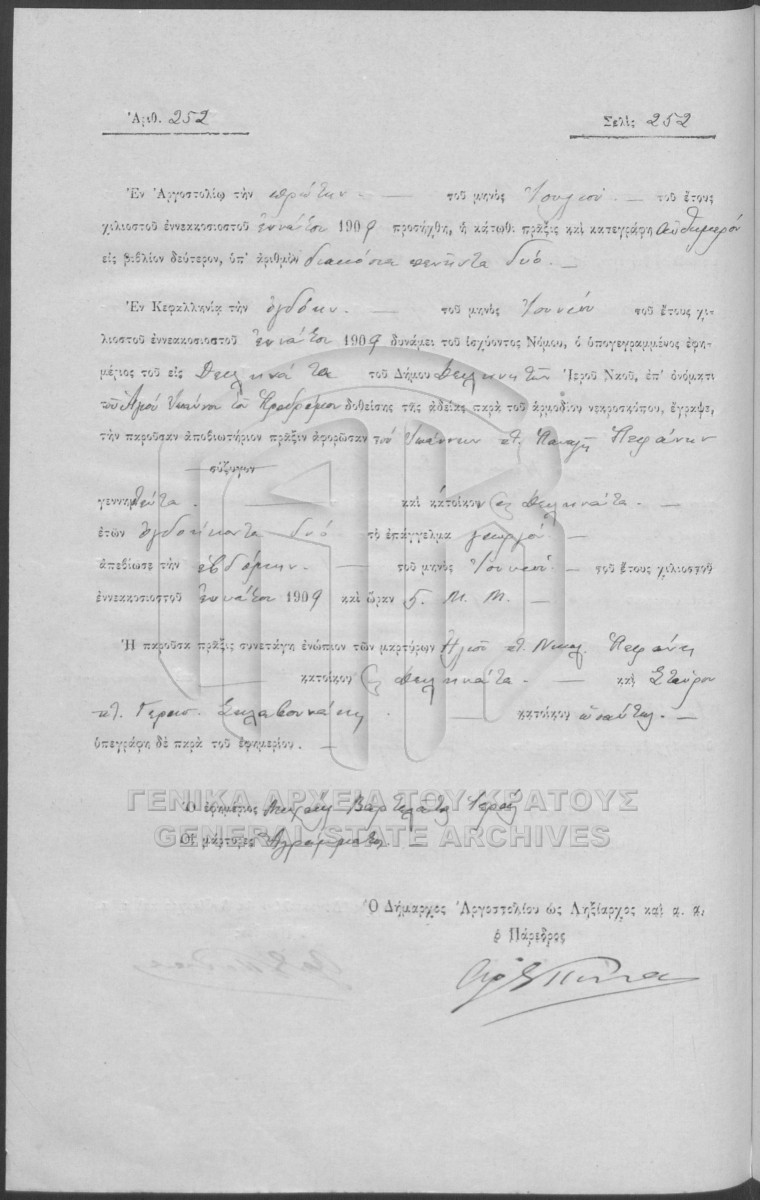 Ἀριθ. 252
Σελὶς 252
Ἐν Ἀργοστολίῳ τὴν πρώτην τοῦ μηνὸς Ἰουλίου τοῦ ἔτους
χιλιοστοῦ ἐννεακοσιοστοῦ ἐννάτου 1909 προσήχθη, ἡ κάτωθι πρᾶξις καὶ κατεγράφη αὐθημερόν
εἰς βιβλίον δεύτερον, ὑπ' ἀριθμὸν διακόσια πενῆντα δυό.
Ἐν Κεφαλληνίᾳ τὴν ὀγδόην τοῦ μηνὸς Ἰουνίου τοῦ ἔτους χι-
λιοστοῦ ἐννεακοσιοστοῦ ἐννάτου 1909 δυνάμει τοῦ ἰσχύοντος Νόμου, ὁ ὑπογεγραμμένος ἐφη-
μέριος τοῦ εἰς τοῦ Δήμου Ἱεροῦ Ναοῦ, ἐπ' ὀνόματι
τοῦ Ἁγίου Ἰωάννου τοῦ Προδρόμου δοθείσης τῆς ἀδείας παρὰ τοῦ ἁρμοδίου νεκροσκόπου, ἔγραψε,
τὴν παροῦσαν ἀποβιωτήριον πρᾶξιν ἀφορῶσαν τόν Ἰωάννην π. Παναγῆ
σύζυγον
γεννηθέντα καὶ κάτοικον εἰς
ἐτῶν ὀγδοήκοντα δυό τὸ ἐπάγγελμα γεωργόν
ἀπεβίωσε τὴν ἑβδόμην τοῦ μηνὸς Ἰουνίου τοῦ ἔτους χιλιοστοῦ
ἐννεακοσιοστοῦ ἐννάτου 1909 καὶ ὥραν 5. Μ. Μ.
Ἡ παροῦσα πρᾶξις συνετάγη ἐνώπιον τῶν μαρτύρων π. Νικολ.
κατοίκου εἰς καὶ Σταύρου
π. Γερασ. κατοίκου ὡσαύτως
ὑπεγράφη δὲ παρὰ τοῦ ἐφημερίου.
ΓΕΝΙΚΑ ΑΡΧΕΙΑ ΤΟΥ ΚΡΑΤΟΥΣ
Ὁ ἐφημέριος Ἱερεύς
GENERAL STATE ARCHIVES
Οἱ μάρτυρες Ἀγράμματοι
Ὁ Δήμαρχος Ἀργοστολίου ὡς Ληξίαρχος καὶ α. α.
ὁ Πάρεδρος